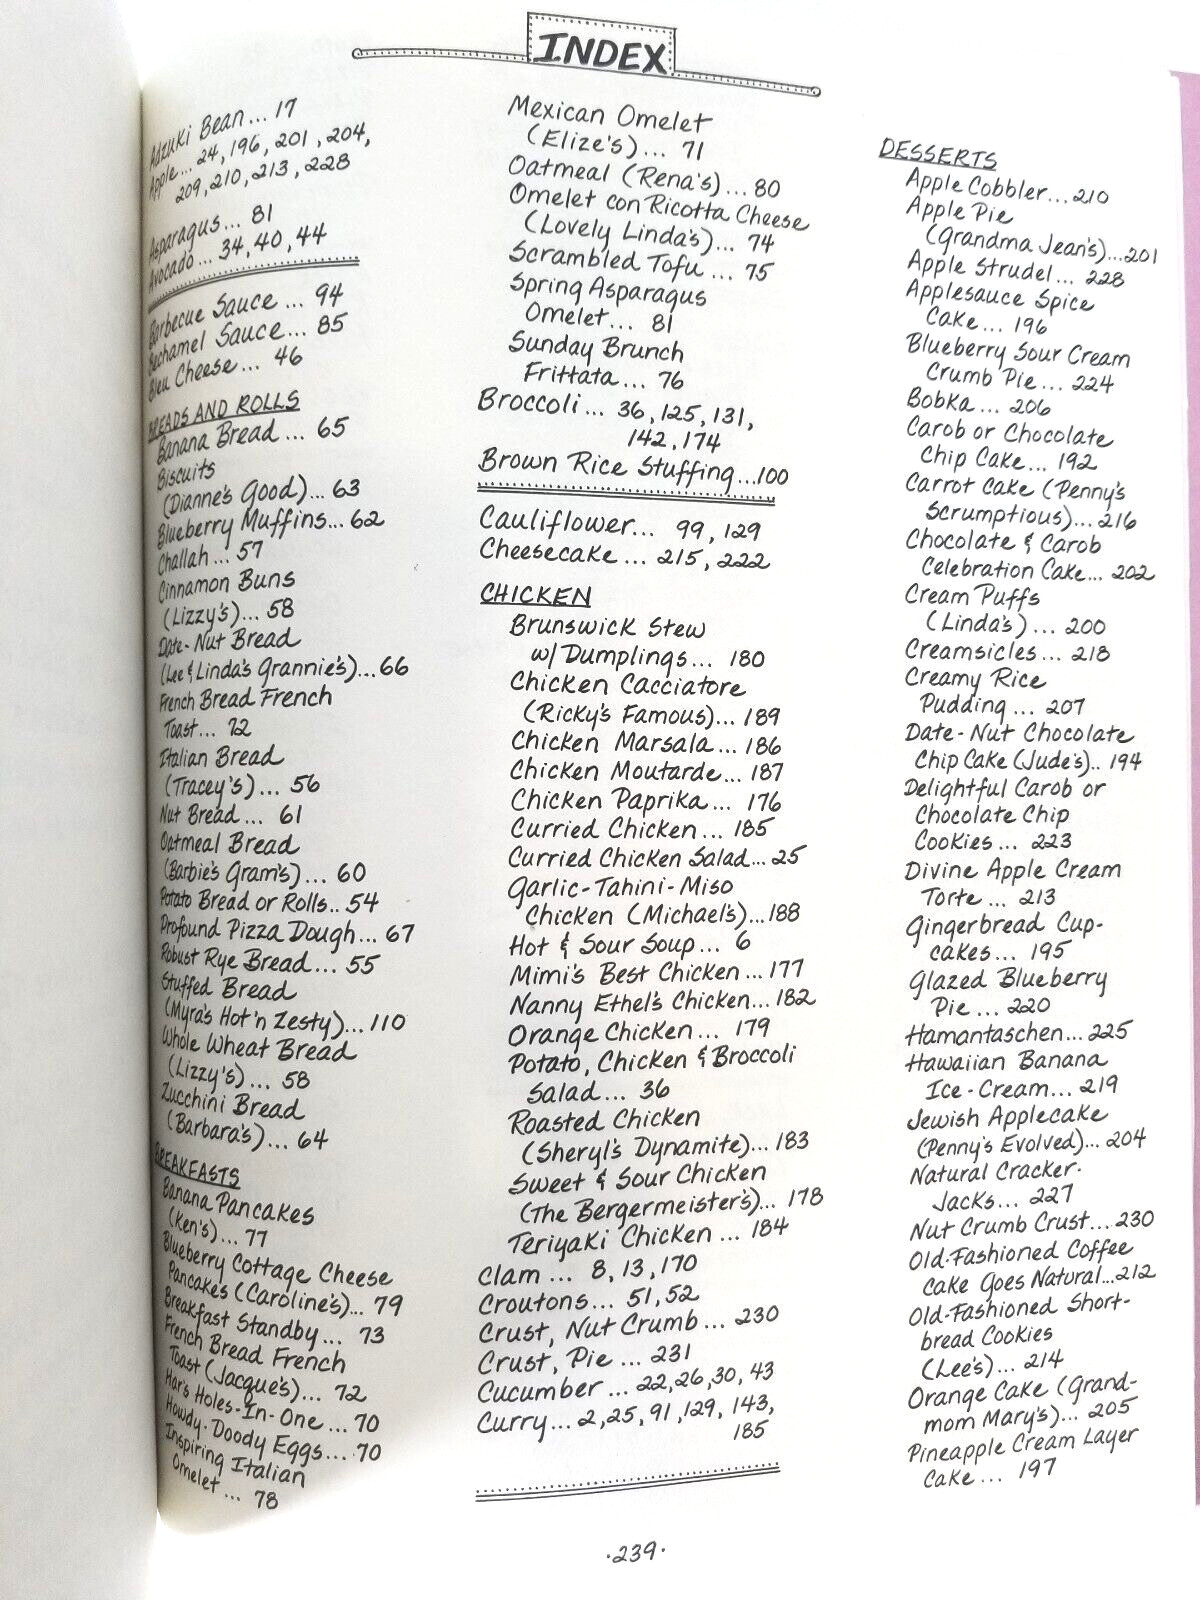 INDEX
Adzuki Bean... 17
Apple... 24, 196, 201, 204,
209, 210, 213, 228
Asparagus... 81
Avocado... 34, 40, 44
Barbecue Sauce ... 94
Bechamel Sauce... 85
Bleu Cheese... 46
BREADS AND ROLLS
Banana Bread ... 65
Biscuits
(Dianne's Good)... 63
Blueberry Muffins... 62
Challah... 57
Cinnamon Buns
(Lizzy's)... 58
Date-Nut Bread
(Lee & Linda's Grannie's)... 66
French Bread French
Toast... 72
Italian Bread
(Tracey's)... 56
Nut Bread... 61
Oatmeal Bread
(Barbie's Gram's)... 60
Potato Bread or Rolls.. 54
Profound Pizza Dough... 67
Robust Rye Bread... 55
Stuffed Bread
(Myra's Hot 'n Zesty)... 110
Whole Wheat Bread
(Lizzy's)... 58
Zucchini Bread
(Barbara's)... 64
BREAKFASTS
Banana Pancakes
(Ken's)... 77
Blueberry Cottage Cheese
Pancakes (Caroline's)... 79
Breakfast Standby... 73
French Bread French
Toast (Jacque's)... 72
Har's Holes-In-One ... 70
Howdy-Doody Eggs... 70
Inspiring Italian
Omelet ... 78
Mexican Omelet
(Elize's)... 71
Oatmeal (Rena's)... 80
Omelet con Ricotta Cheese
(Lovely Linda's)... 74
Scrambled Tofu ... 75
Spring Asparagus
Omelet... 81
Sunday Brunch
Frittata... 76
Broccoli... 36, 125, 131,
142, 174
Brown Rice Stuffing...100
Cauliflower... 99, 129
Cheesecake... 215, 222
CHICKEN
Brunswick Stew
w/ Dumplings... 180
Chicken Cacciatore
(Ricky's Famous)... 189
Chicken Marsala... 186
Chicken Moutarde... 187
Chicken Paprika... 176
Curried Chicken... 185
Curried Chicken Salad... 25
Garlic-Tahini-Miso
Chicken (Michael's)...188
Hot & Sour Soup... 6
Mimi's Best Chicken... 177
Nanny Ethel's Chicken... 182
Orange Chicken... 179
Potato, Chicken & Broccoli
Salad... 36
Roasted Chicken
(Sheryl's Dynamite)... 183
Sweet & Sour Chicken
(The Bergermeister's)... 178
Teriyaki Chicken ... 184
Clam ... 8, 13, 170
Croutons... 51, 52
Crust, Nut Crumb ... 230
Crust, Pie ... 231
Cucumber ... 22, 26, 30, 43
Curry... 2, 25, 91, 129, 143,
185
DESSERTS
Apple Cobbler... 210
Apple Pie
(Grandma Jean's)...201
Apple Strudel... 228
Applesauce Spice
Cake... 196
Blueberry Sour Cream
Crumb Pie... 224
Bobka... 206
Carob or Chocolate
Chip Cake... 192
Carrot Cake (Penny's
Scrumptious)... 216
Chocolate & Carob
Celebration Cake... 202
Cream Puffs
(Linda's) ... 200
Creamsicles... 218
Creamy Rice
Pudding... 207
Date-Nut Chocolate
Chip Cake (Jude's).. 194
Delightful Carob or
Chocolate Chip
Cookies... 223
Divine Apple Cream
Torte ... 213
Gingerbread Cup-
cakes... 195
Glazed Blueberry
Pie ... 220
Hamantaschen... 225
Hawaiian Banana
Ice-Cream... 219
Jewish Applecake
(Penny's Evolved)... 204
Natural Cracker-
Jacks... 227
Nut Crumb Crust... 230
Old-Fashioned Coffee
Cake Goes Natural...212
Old-Fashioned Short-
bread Cookies
(Lee's)... 214
Orange Cake (Grand-
mom Mary's)... 205
Pineapple Cream Layer
Cake... 197
·239·